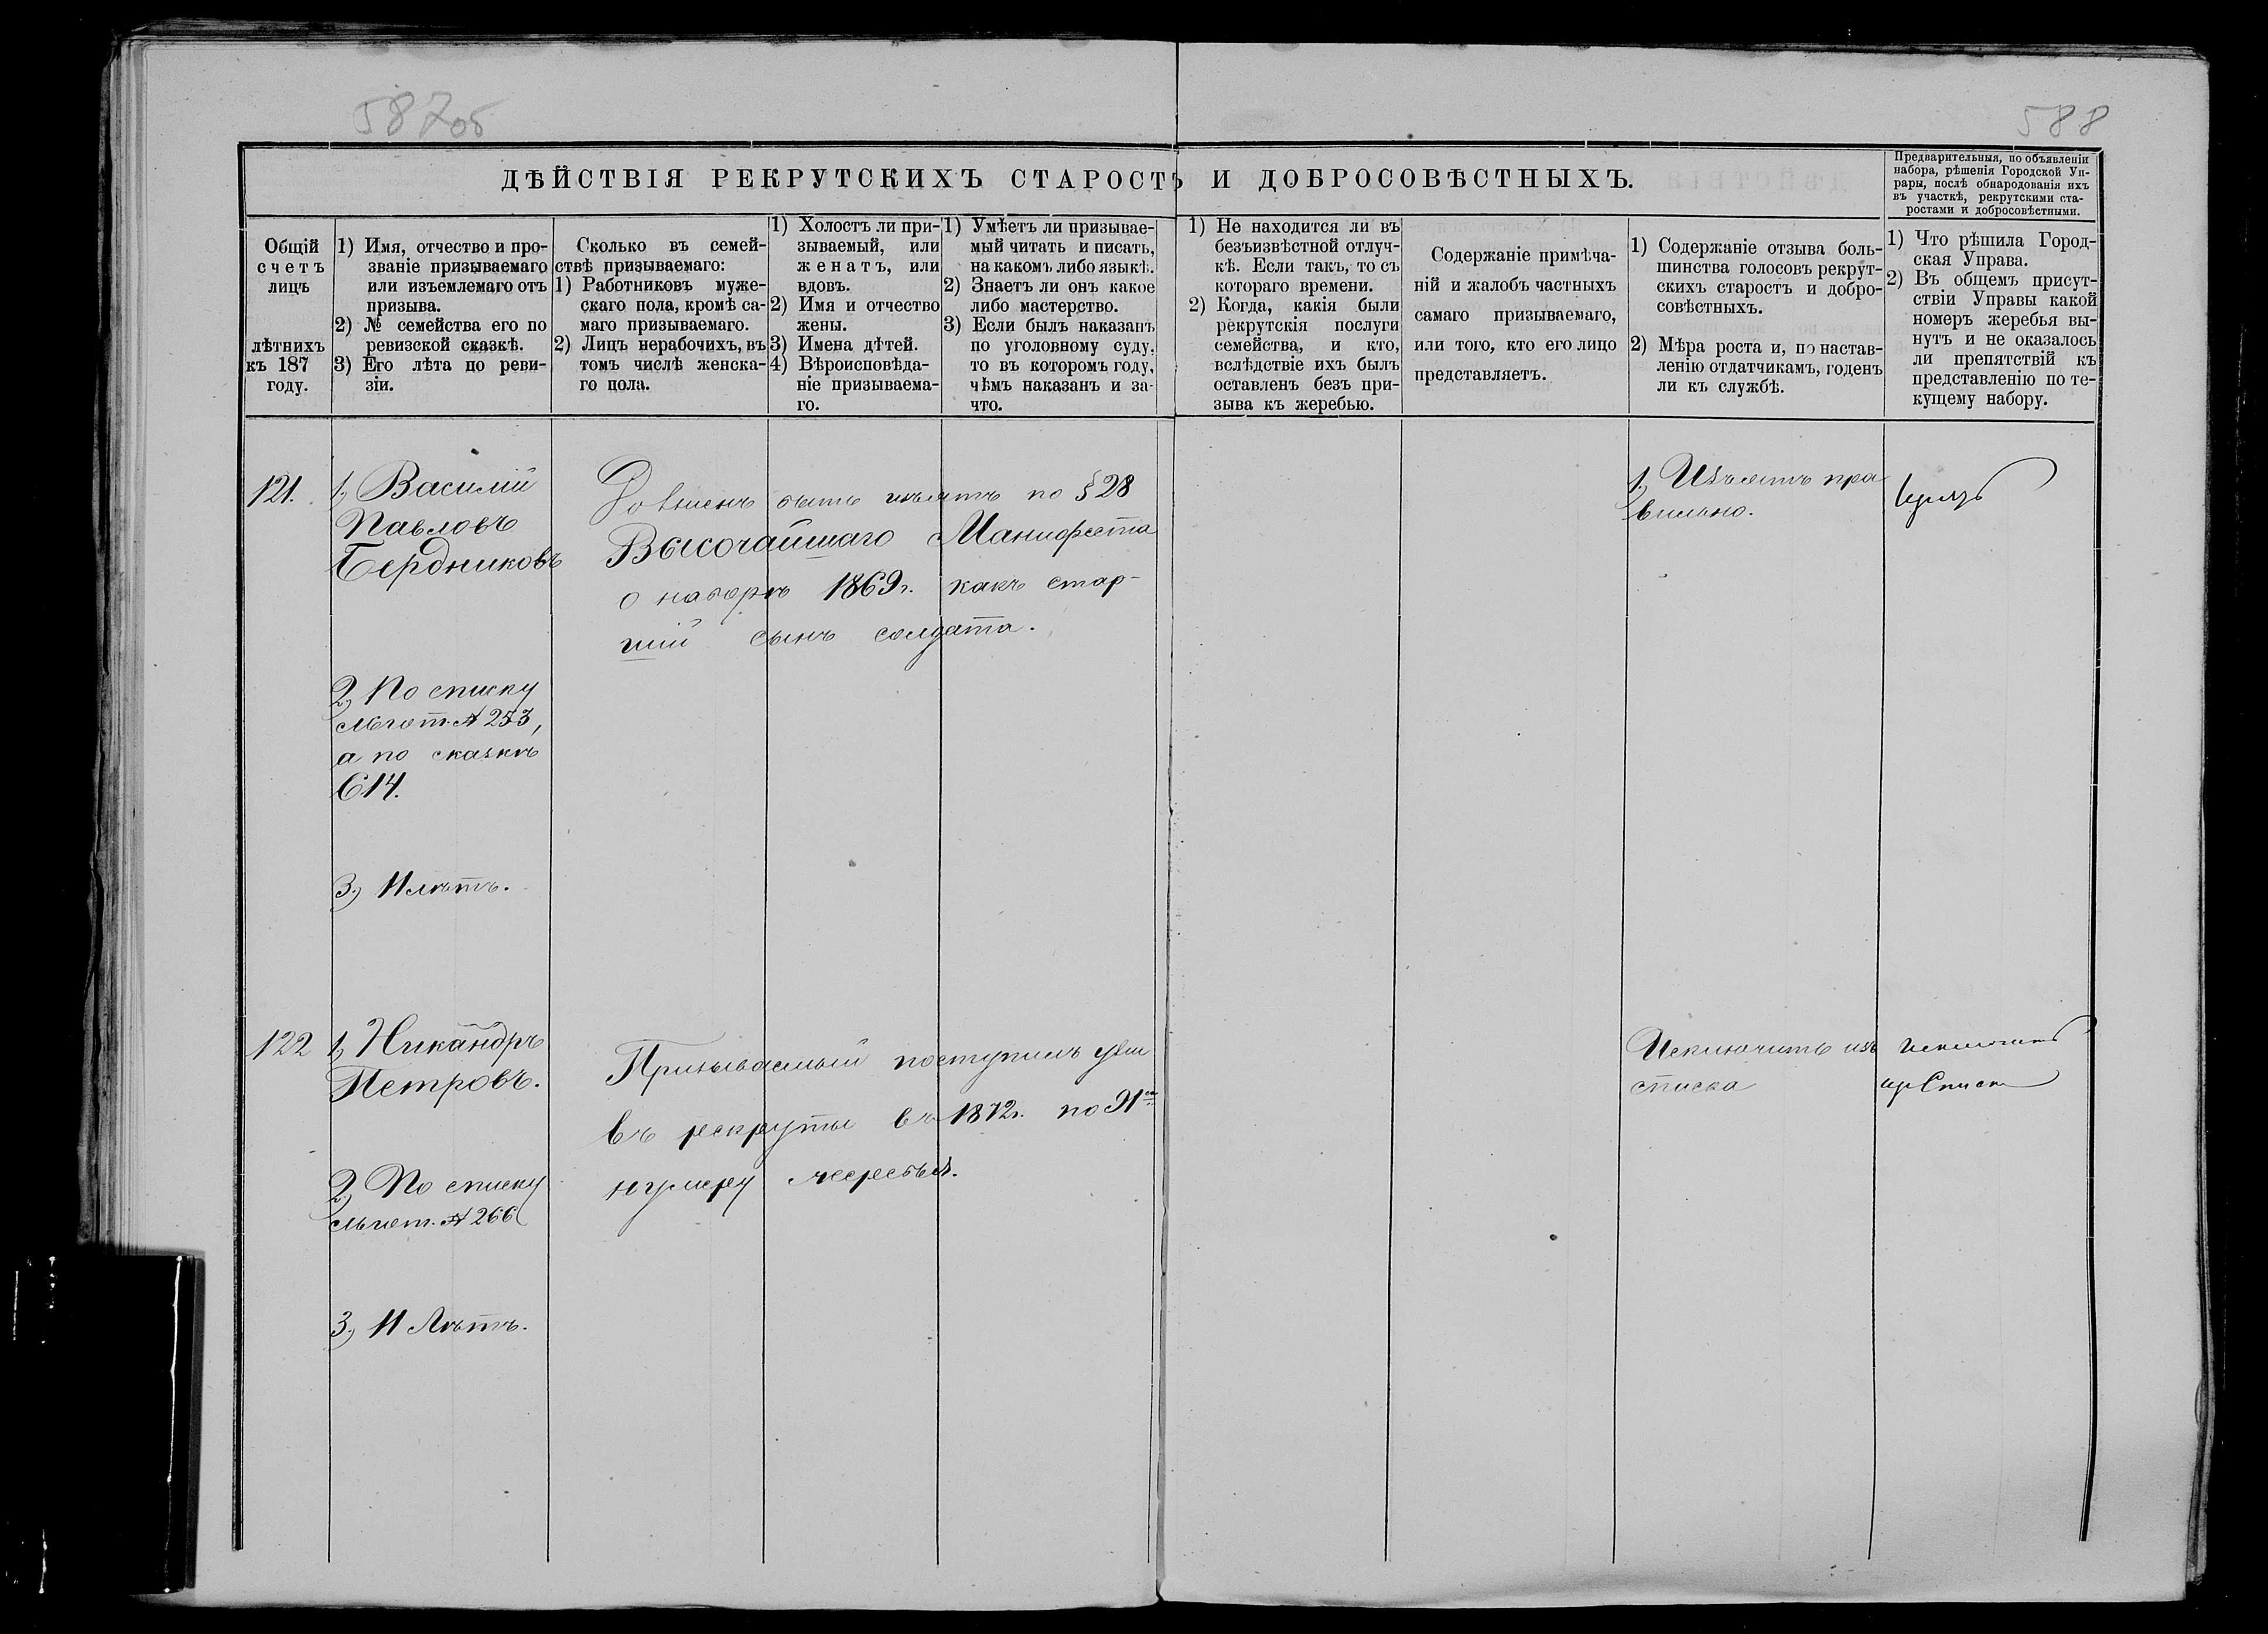 587об
588
ДѢЙСТВІЯ РЕКРУТСКИХЪ СТАРОСТЪ И ДОБРОСОВѢСТНЫХЪ.
Предварительныя, по объявленіи
набора, рѣшенія Городской Уп-
равы, послѣ обнародованія ихъ
въ участкѣ, рекрутскими ста-
ростами и добросовѣстными.
Общій
счетъ
лицъ
лѣтнихъ
къ 187
году.
1) Имя, отчество и про-
званіе призываемаго
или изъемлемаго отъ
призыва.
2) № семейства его по
ревизской сказкѣ.
3) Его лѣта по реви-
зіи.
Сколько въ семей-
ствѣ призываемаго:
1) Работниковъ муже-
скаго пола, кромѣ са-
маго призываемаго.
2) Лицъ нерабочихъ, въ
томъ числѣ женска-
го пола.
1) Холостъ ли при-
зываемый, или
женатъ, или
вдовъ.
2) Имя и отчество
жены.
3) Имена дѣтей.
4) Вѣроисповѣда-
ніе призываема-
го.
1) Умѣетъ ли призывае-
мый читать и писать,
на какомъ либо языкѣ.
2) Знаетъ ли онъ какое
либо мастерство.
3) Если былъ наказанъ
по уголовному суду,
то въ которомъ году,
чѣмъ наказанъ и за-
что.
1) Не находится ли въ
безъизвѣстной отлуч-
кѣ. Если такъ, то съ
котораго времени.
2) Когда, какія были
рекрутскія послуги
семейства, и кто,
вслѣдствіе ихъ былъ
оставленъ безъ при-
зыва къ жеребью.
Содержаніе примѣча-
ній и жалобъ частныхъ
самаго призываемаго,
или того, кто его лицо
представляетъ.
1) Содержаніе отзыва боль-
шинства голосовъ рекрут-
скихъ старостъ и добро-
совѣстныхъ.
2) Мѣра роста и, по настав-
ленію отдатчикамъ, годенъ
ли къ службѣ.
1) Что рѣшила Город-
ская Управа.
2) Въ общемъ присут-
ствіи Управы какой
номеръ жеребья вы-
нутъ и не оказалось
ли препятствій къ
представленію по те-
кущему набору.
121.
1, Василій
Павловъ
Бердниковъ
2, По списку
льгот. № 253,
а по сказкѣ
614.
3, 11 лѣтъ.
Долженъ быть изъятъ по § 28
Высочайшаго Манифеста
о наборѣ 1869г. какъ стар-
шій сынъ солдата.
1, Изъятъ пра
вильно.
122
1, Никандръ
Петровъ.
2, По списку
льгот. № 266
3, 11 Лѣтъ.
Призываемый поступилъ уже
въ рекруты въ 1872г. по 91му
нумеру жеребья.
Исключить изъ
списка
Исключить
изъ Списка